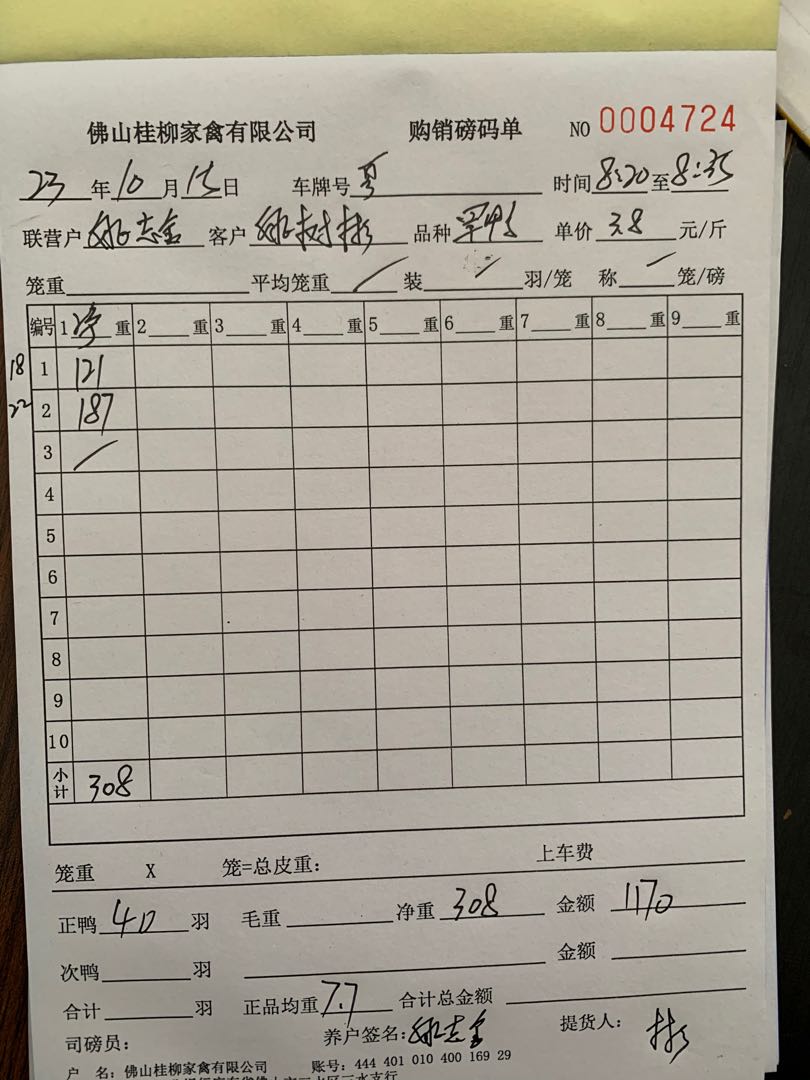 佛山桂柳家禽有限公司 购销磅码单 NO 0004724
23年10月15日 车牌号粤 时间8:20至8:35
联营户姚志金 客户姚树彬 品种 单价3.8元/斤
笼重 平均笼重/装/羽/笼 称/笼/磅
编号 1净重 2重 3重 4重 5重 6重 7重 8重 9重
18 1 121
22 2 187
3 /
4
5
6
7
8
9
10
小计 308
笼重 X 笼=总皮重： 上车费
正鸭40羽 毛重 净重308 金额1170
次鸭羽 金额
合计羽 正品均重7.7 合计总金额
司磅员： 养户签名：姚志金 提货人：彬
户 名：佛山桂柳家禽有限公司 账号：444 401 010 400 169 29